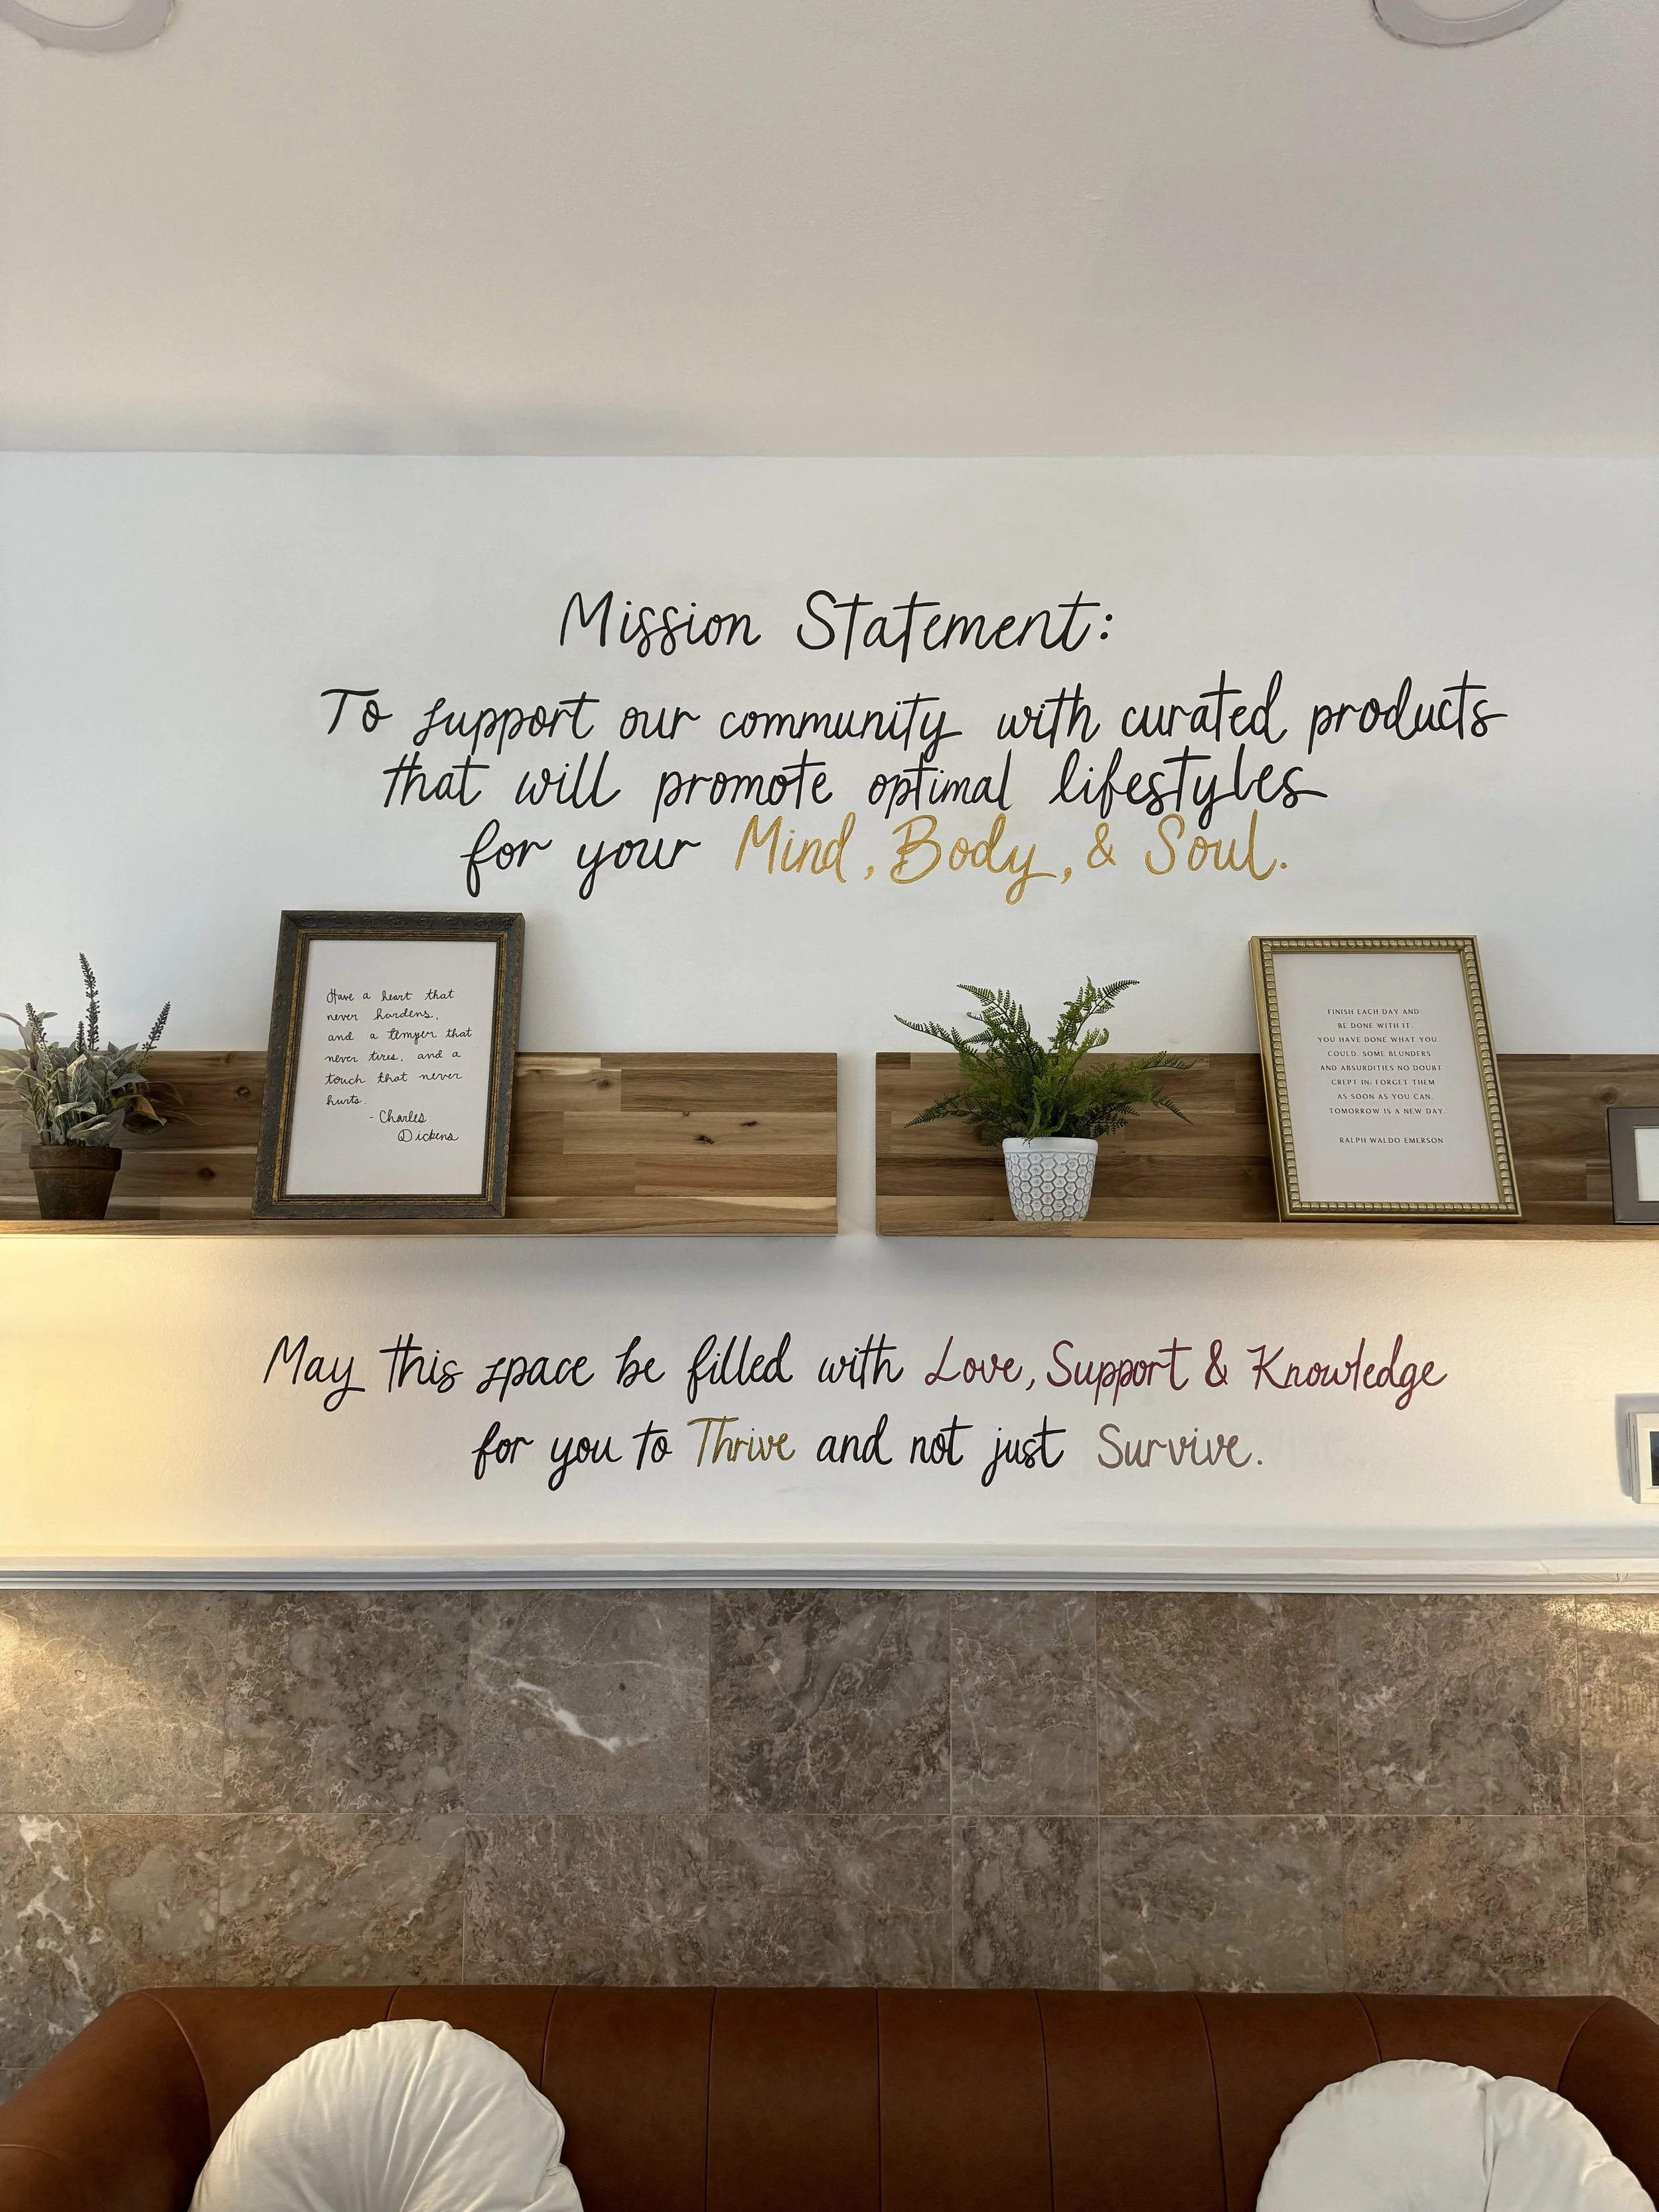 Mission Statement:
To support our community with curated products
that will promote optimal lifestyles
for your Mind, Body, & Soul.
Have a heart that
never hardens,
and a temper that
never tires, and a
touch that never
hurts.
- Charles
Dickens
FINISH EACH DAY AND
BE DONE WITH IT.
YOU HAVE DONE WHAT YOU
COULD. SOME BLUNDERS
AND ABSURDITIES NO DOUBT
CREPT IN; FORGET THEM
AS SOON AS YOU CAN.
TOMORROW IS A NEW DAY.
RALPH WALDO EMERSON
May this space be filled with Love, Support & Knowledge
for you to Thrive and not just Survive.